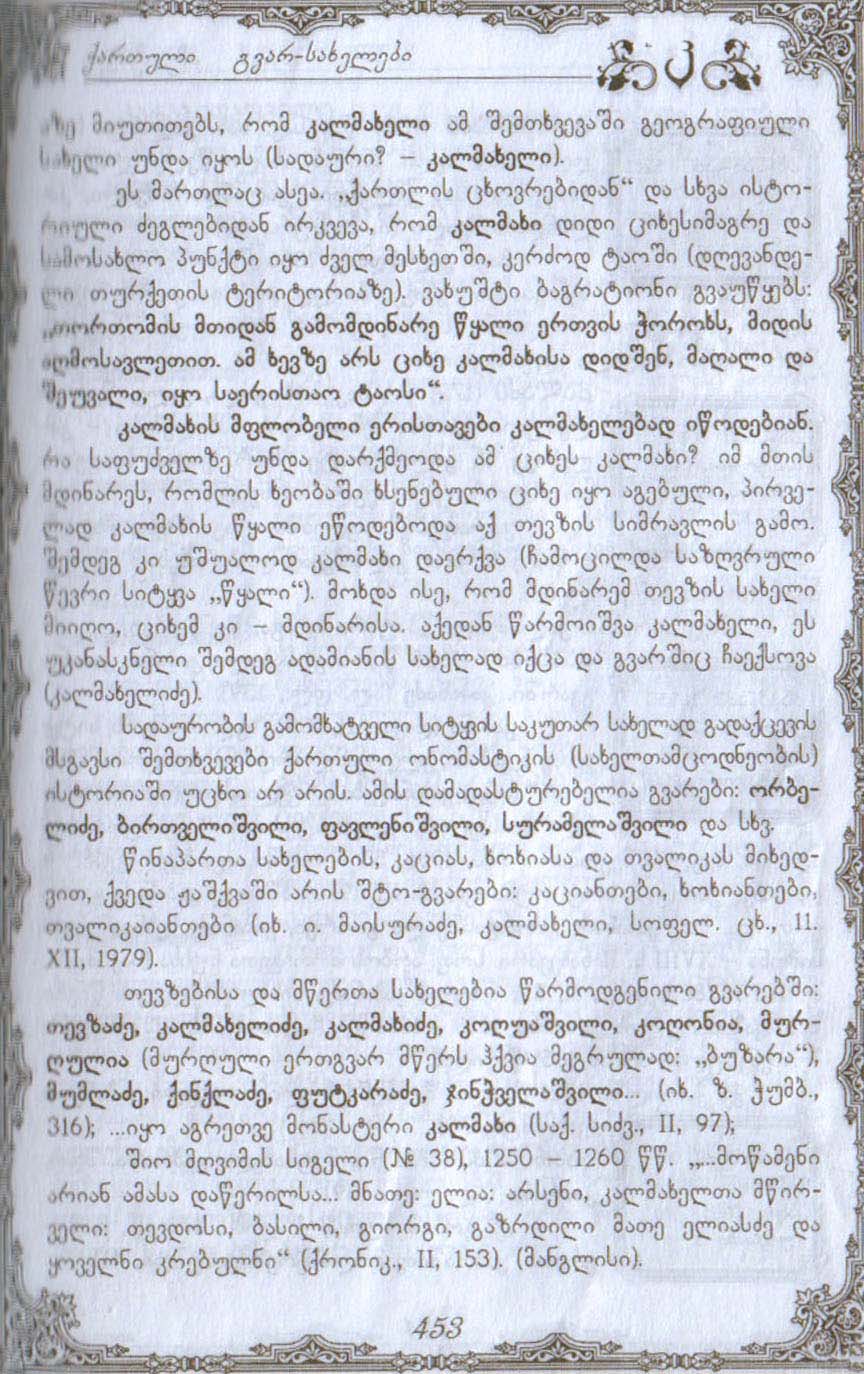 ქართული გვარ-სახელები
მიუთითებს, რომ კალმახელი ამ შემთხვევაში გეოგრაფიული
სახელი უნდა იყოს (სადაური? – კალმახელი).
ეს მართლაც ასეა. „ქართლის ცხოვრებიდან“ და სხვა ისტო-
რიული ძეგლებიდან ირკვევა, რომ კალმახი დიდი ციხესიმაგრე და
სამოსახლო პუნქტი იყო ძველ მესხეთში, კერძოდ ტაოში (დღევანდე-
ლი თურქეთის ტერიტორიაზე). ვახუშტი ბაგრატიონი გვაუწყებს:
„თორთომის მთიდან გამომდინარე წყალი ერთვის ჭოროხს, მიდის
აღმოსავლეთით. ამ ხევზე არს ციხე კალმახისა დიდშენ, მაღალი და
შეუვალი, იყო საერისთაო ტაოსი“.
კალმახის მფლობელი ერისთავები კალმახელებად იწოდებიან.
რა საფუძველზე უნდა დარქმეოდა ამ ციხეს კალმახი? იმ მთის
მდინარეს, რომლის ხეობაში ხსენებული ციხე იყო აგებული, პირვე-
ლად კალმახის წყალი ეწოდებოდა აქ თევზის სიმრავლის გამო.
შემდეგ კი უშუალოდ კალმახი დაერქვა (ჩამოცილდა საზღვრული
წევრი სიტყვა „წყალი“). მოხდა ისე, რომ მდინარემ თევზის სახელი
მიიღო, ციხემ კი – მდინარისა. აქედან წარმოიშვა კალმახელი, ეს
უკანასკნელი შემდეგ ადამიანის სახელად იქცა და გვარშიც ჩაექსოვა
(კალმახელიძე).
სადაურობის გამომხატველი სიტყვის საკუთარ სახელად გადაქცევის
მსგავსი შემთხვევები ქართული ონომასტიკის (სახელთამცოდნეობის)
ისტორიაში უცხო არ არის. ამის დამადასტურებელია გვარები: ორბე-
ლიძე, ბირთველიშვილი, ფავლენიშვილი, სურამელაშვილი და სხვ.
წინაპართა სახელების, კაციას, ხოხიასა და თვალიკას მიხედ-
ვით, ქვედა ჟაშქვაში არის შტო-გვარები: კაციანთები, ხოხიანთები,
თვალიკაიანთები (იხ. ი. მაისურაძე, კალმახელი, სოფელ. ცხ., 11.
XII, 1979).
თევზებისა და მწერთა სახელებია წარმოდგენილი გვარებში:
თევზაძე, კალმახელიძე, კალმახიძე, კოღუაშვილი, კოღონია, მურ-
ღულია (მურღული ერთგვარ მწერს ჰქვია მეგრულად: „ბუზარა“),
მუმლაძე, ქინქლაძე, ფუტკარაძე, ჯინჭველაშვილი... (იხ. ზ. ჭუმბ.,
316); ...იყო აგრეთვე მონასტერი კალმახი (საქ. სიძვ., II, 97);
შიო მღვიმის სიგელი (№ 38), 1250 – 1260 წწ. „...მოწამენი
არიან ამასა დაწერილსა... მნათე: ელია: არსენი, კალმახელთა მწირ-
ველი: თევდოსი, ბასილი, გიორგი, გაზრდილი მათე ელიასძე და
ყოველნი კრებულნი“ (ქრონიკ., II, 153). (მანგლისი).
453